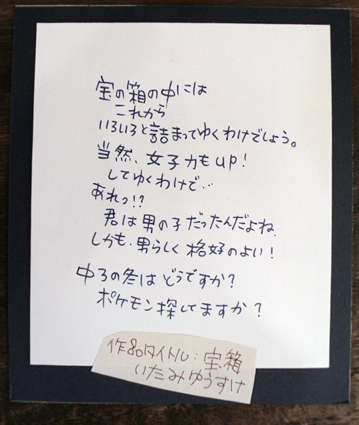 宝の箱の中には
これから
いろいろと詰まってゆくわけでしょう。
当然、女子力もup!
してゆくわけで‥
あれっ!?
君は男の子だったんだよね
しかも、男らしく格好のよい!
中3の冬はどうですか?
ポケモン探してますか?
作品タイトル:宝箱
いたみゆうすけ